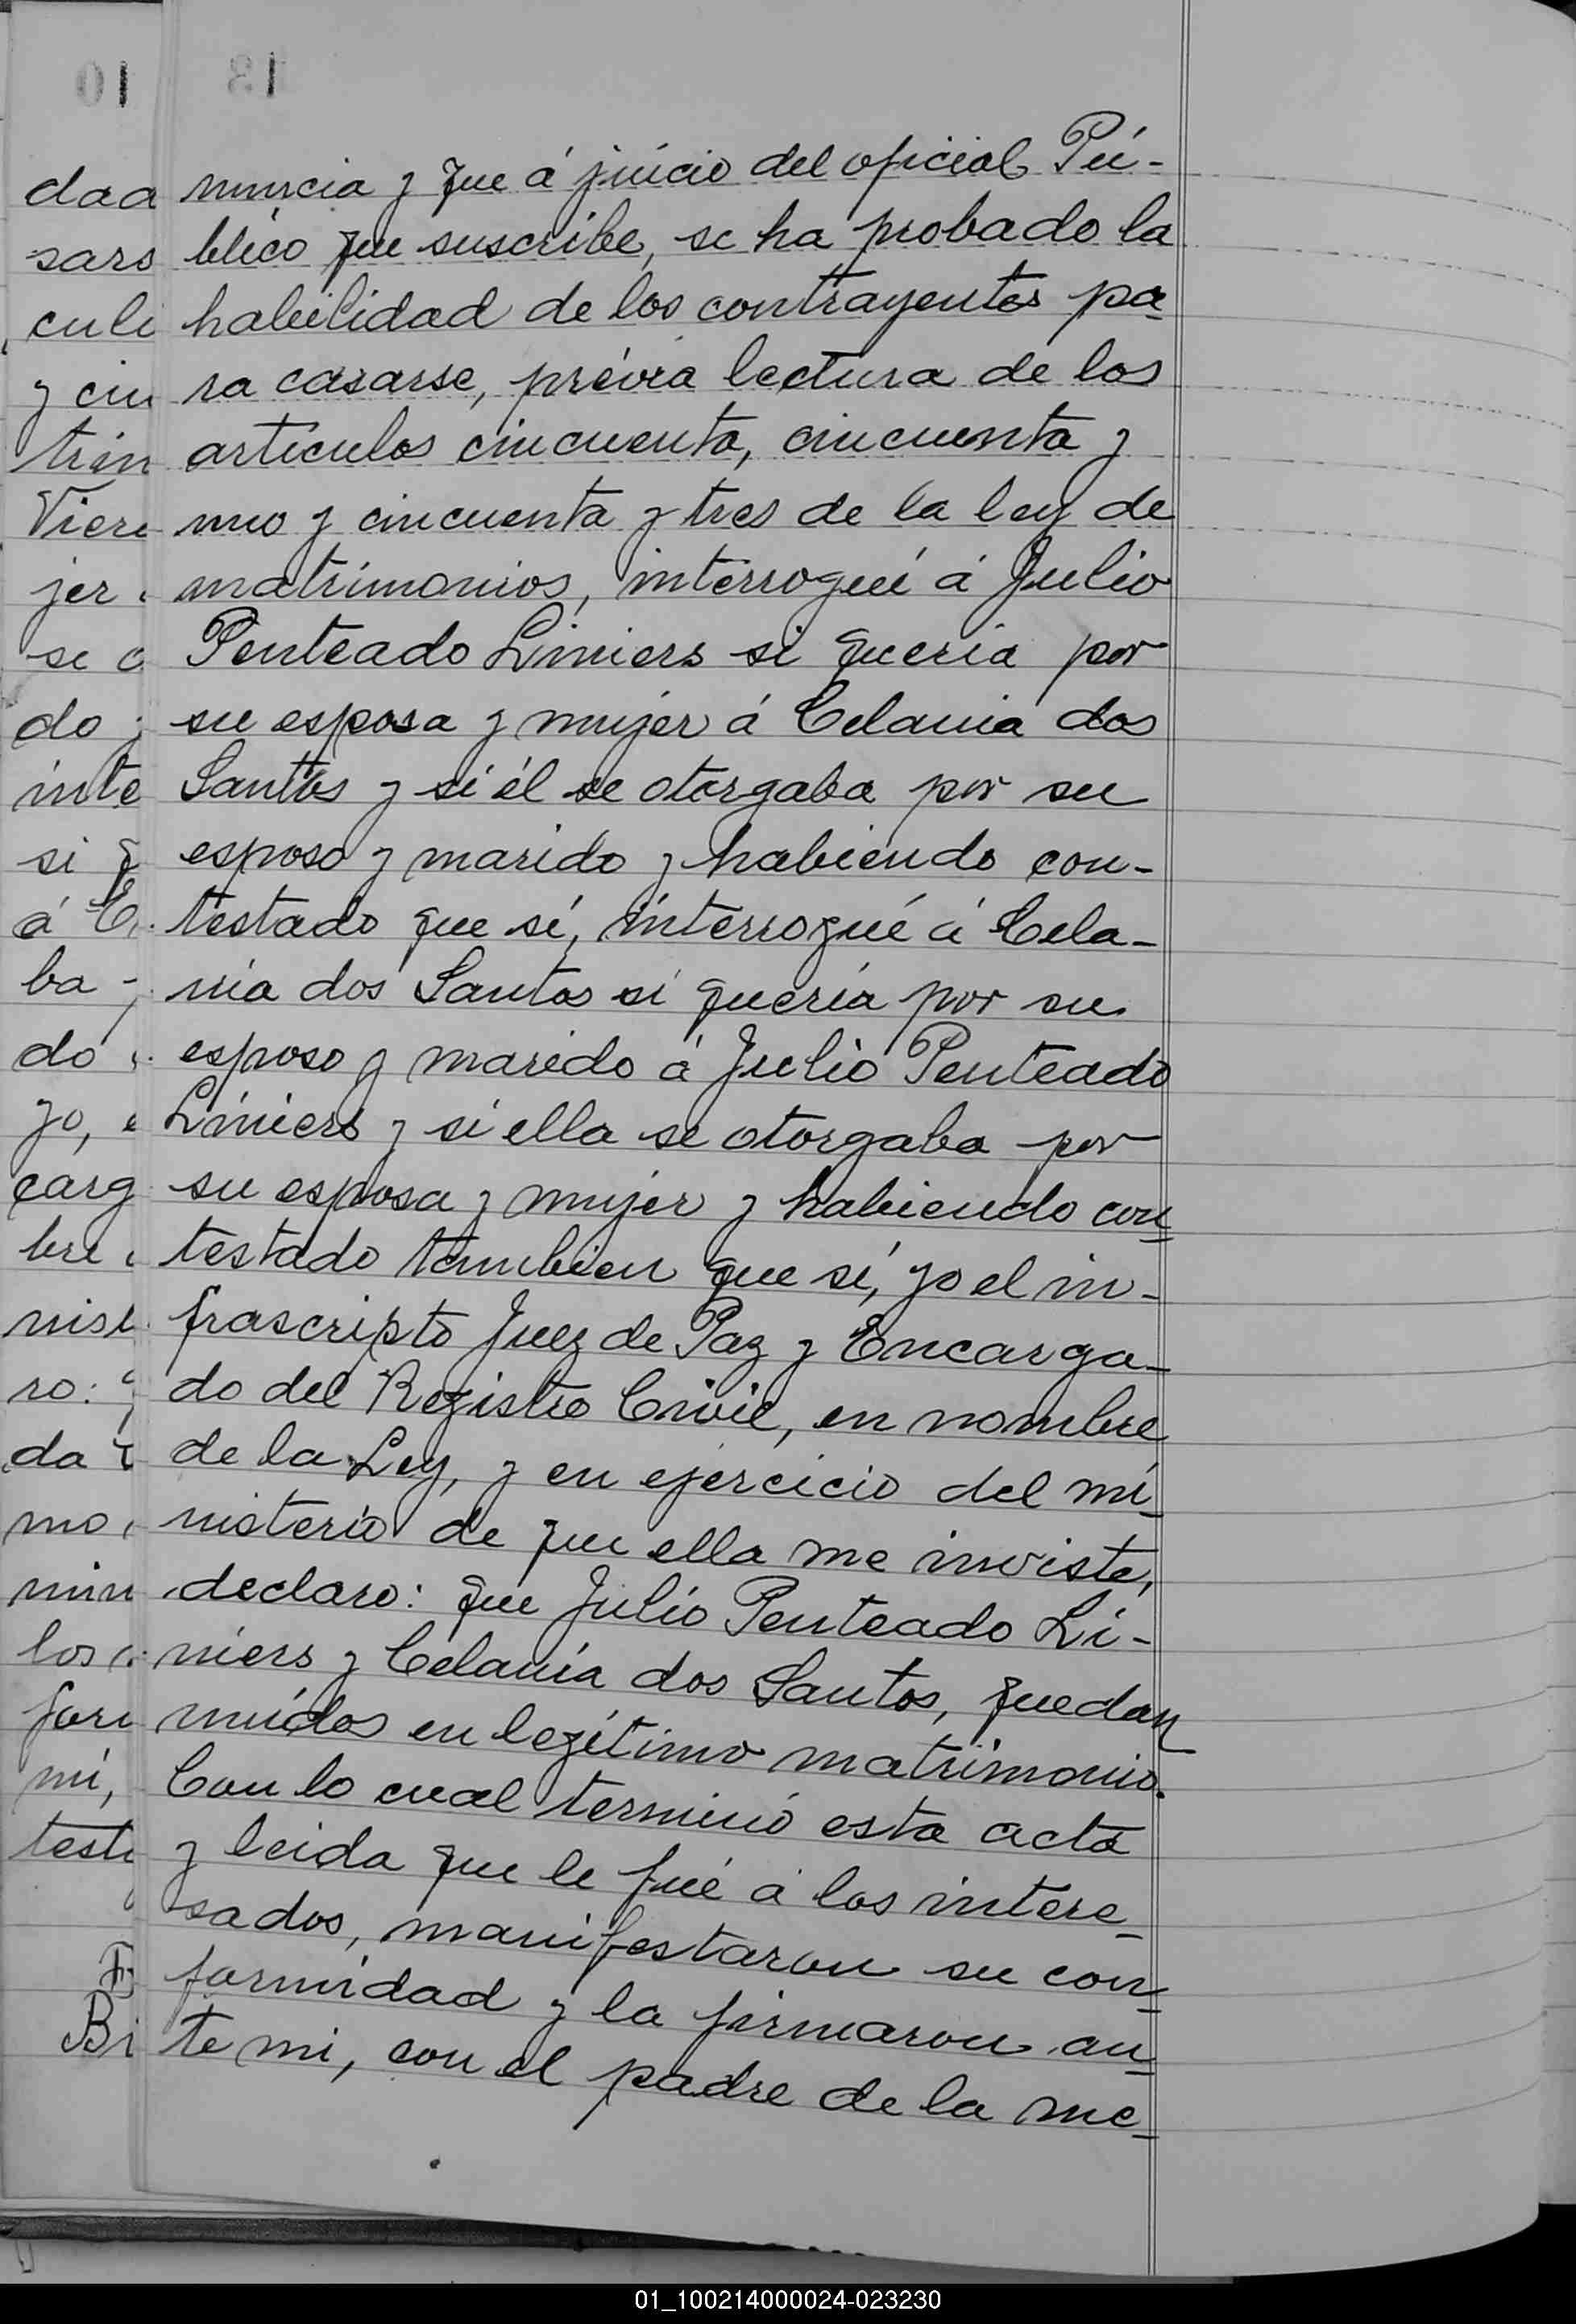 nuncia y que á juicio del oficial Pú-
blico que suscribe, se ha probado la
habilidad de los contrayentes pa-
ra casarse, prévia lectura de los
artículos cincuenta, cincuenta y
uno y cincuenta y tres de la ley de
matrimonios, interrogué á Julio
Penteado Liniers si queria por
su esposa y mujer á Celania dos
Santos y si él se otorgaba por su
esposo y marido y habiendo con-
testado que sí, interrogué á Cela-
nia dos Santos si quería por su
esposo y marido á Julio Penteado
Liniers y si ella se otorgaba por
su esposa y mujer y habiendo con-
testado tambien que sí, yo el in-
frascripto Juez de Paz y Encarga-
do del Registro Civil, en nombre
de la Ley, y en ejercicio del mi-
nisterio de que ella me inviste,
declaro: que Julio Penteado Li-
niers y Celania dos Santos, quedan
unidos en legítimo matrimonio.
Con lo cual terminó esta acta
y leida que le fué á los intere-
sados, manifestaron su con-
formidad y la firmaron an-
te mi, con el padre de la me-
01_100214000024-023230